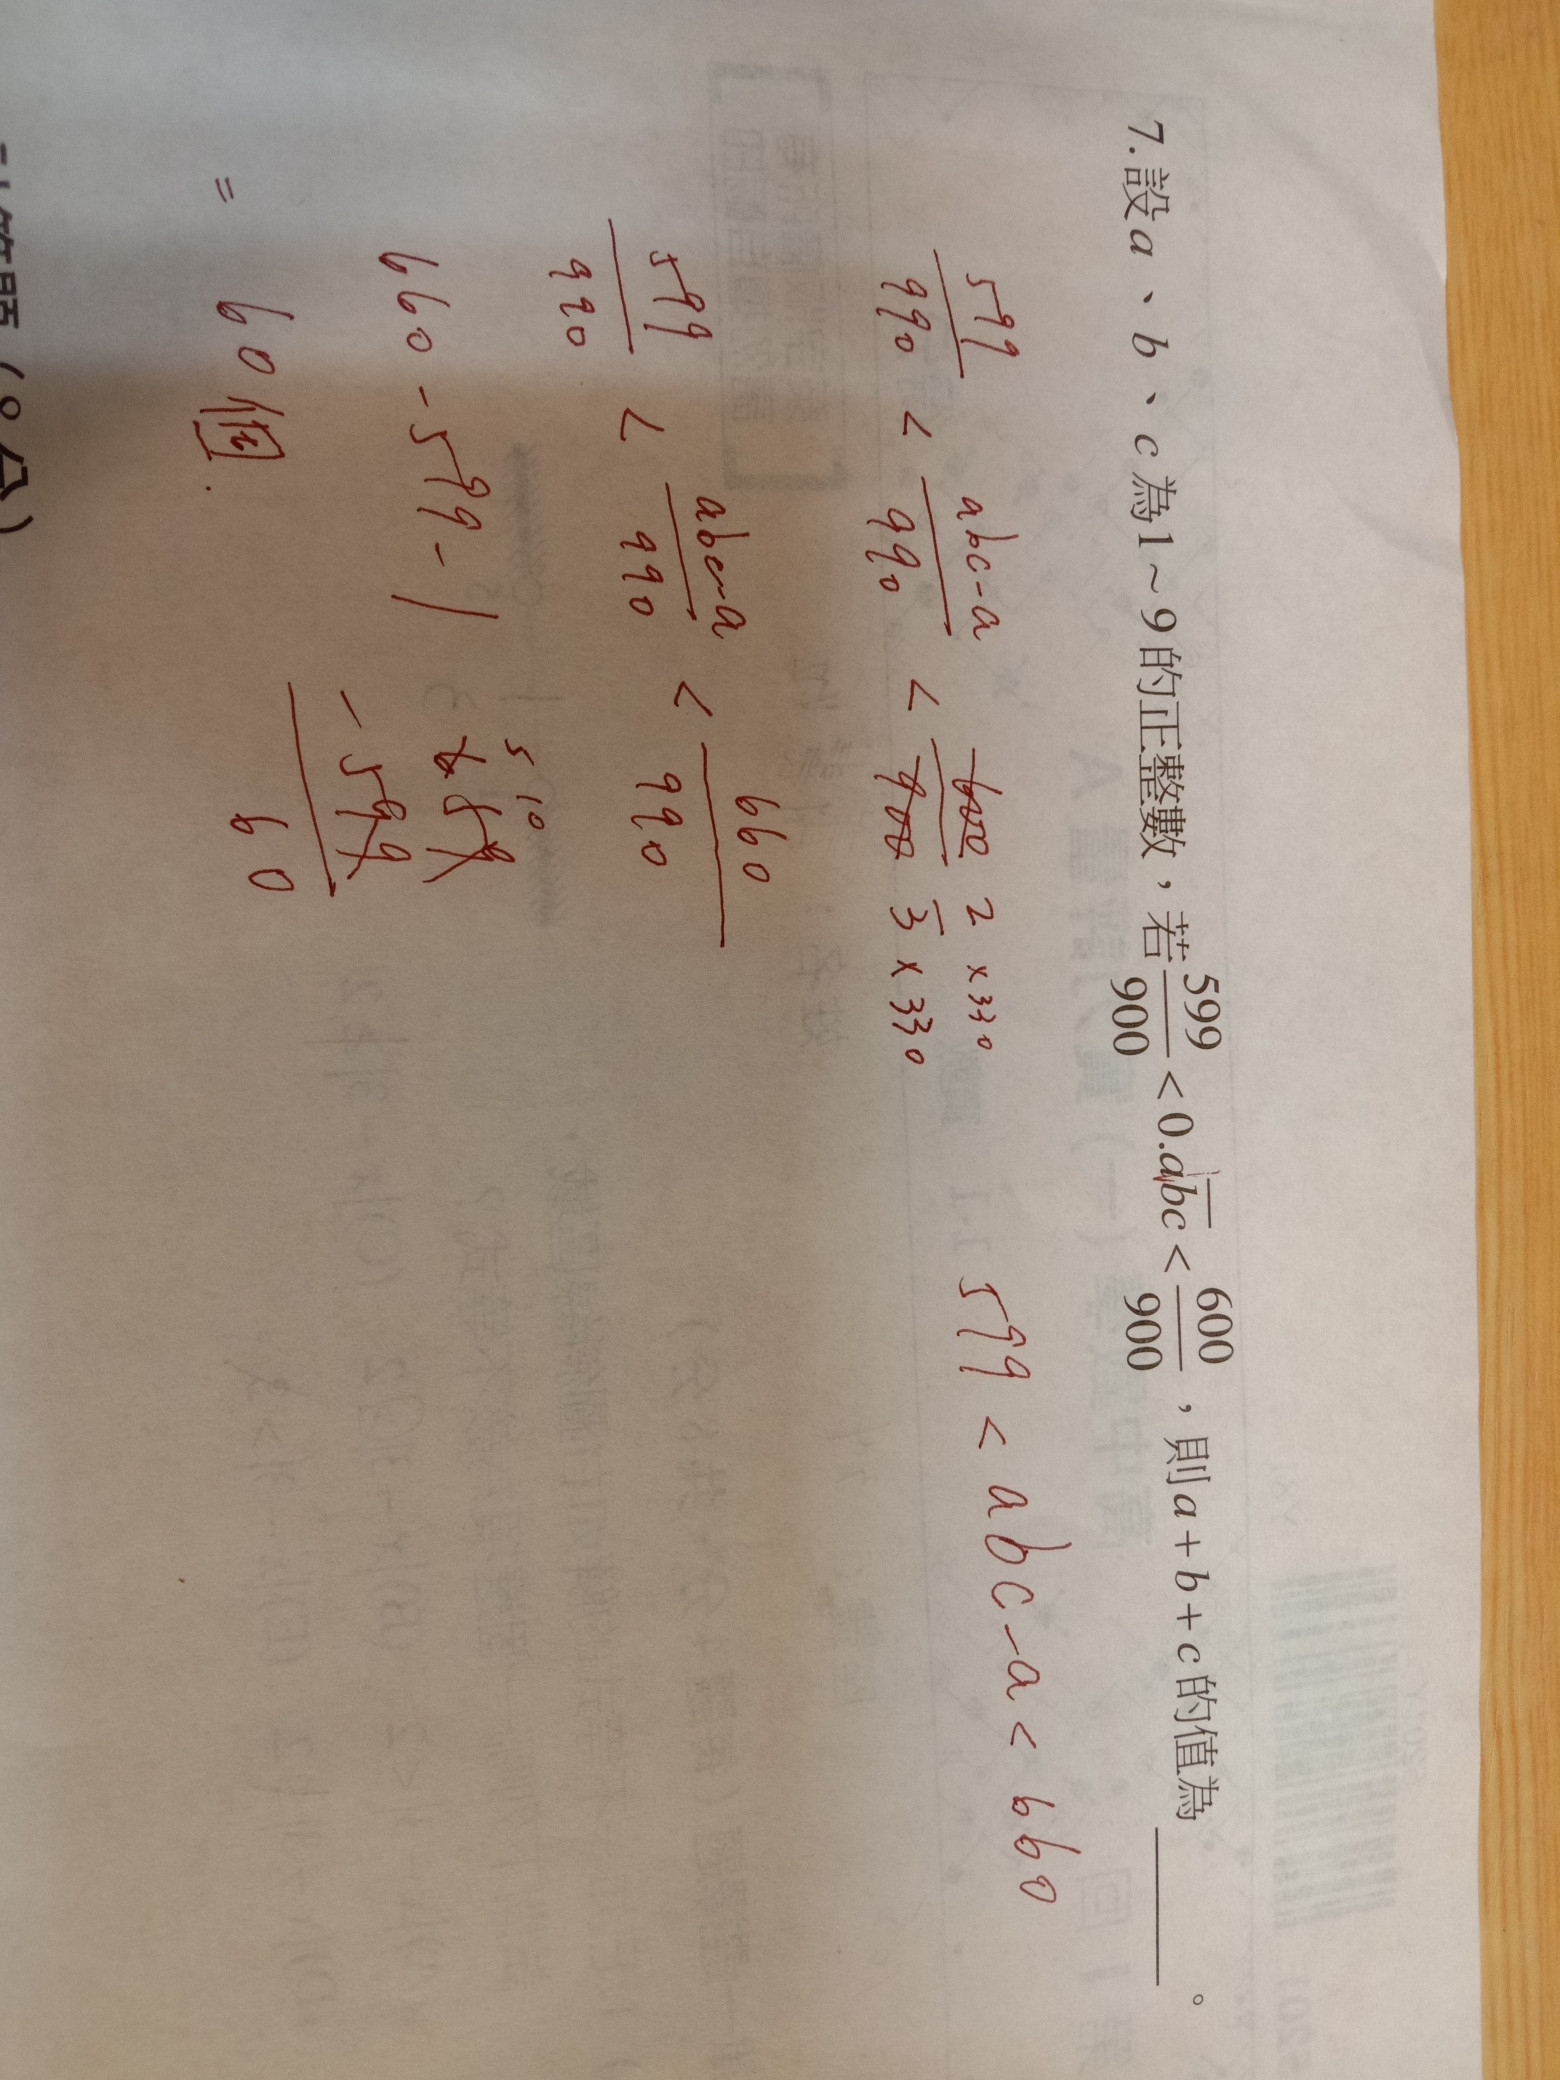 7.設a、b、c為1~9的正整數，若599/900<0.abc̅<600/900，則a+b+c的值為＿＿＿。
599/990 < abc-a/990 < 600/900 2×330/3×330 599<abc-a<660
599/990 < abc-a/990 < 660/990
660-599-1
5 10
659
-599
60
= 60個.
(8分)